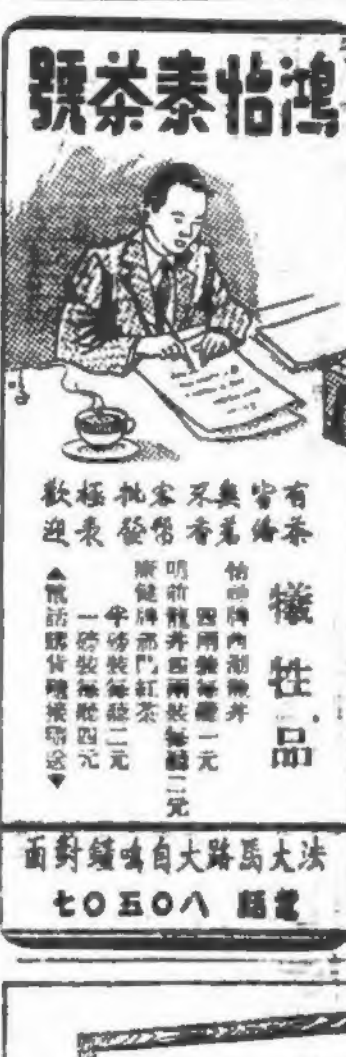 鴻怡泰茶號
有茶皆
無茗不香
客幫批發
極表歡迎
犧牲品
怡牌內井
四兩裝每罐一元
明前龍井四兩裝每罐二元
康健牌祁門紅茶
半磅裝每聽二元
一磅裝每聽四元
▲電話購貨隨接隨送▼
法大馬路大自鳴鐘對面
電話 八〇五〇七